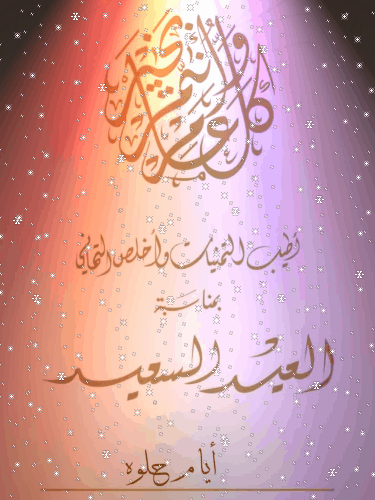 كل عام وأنتم بخير
أطيب التمنيات وأخلص التهاني
بمناسبة
العيد السعيد
أيام حلوه